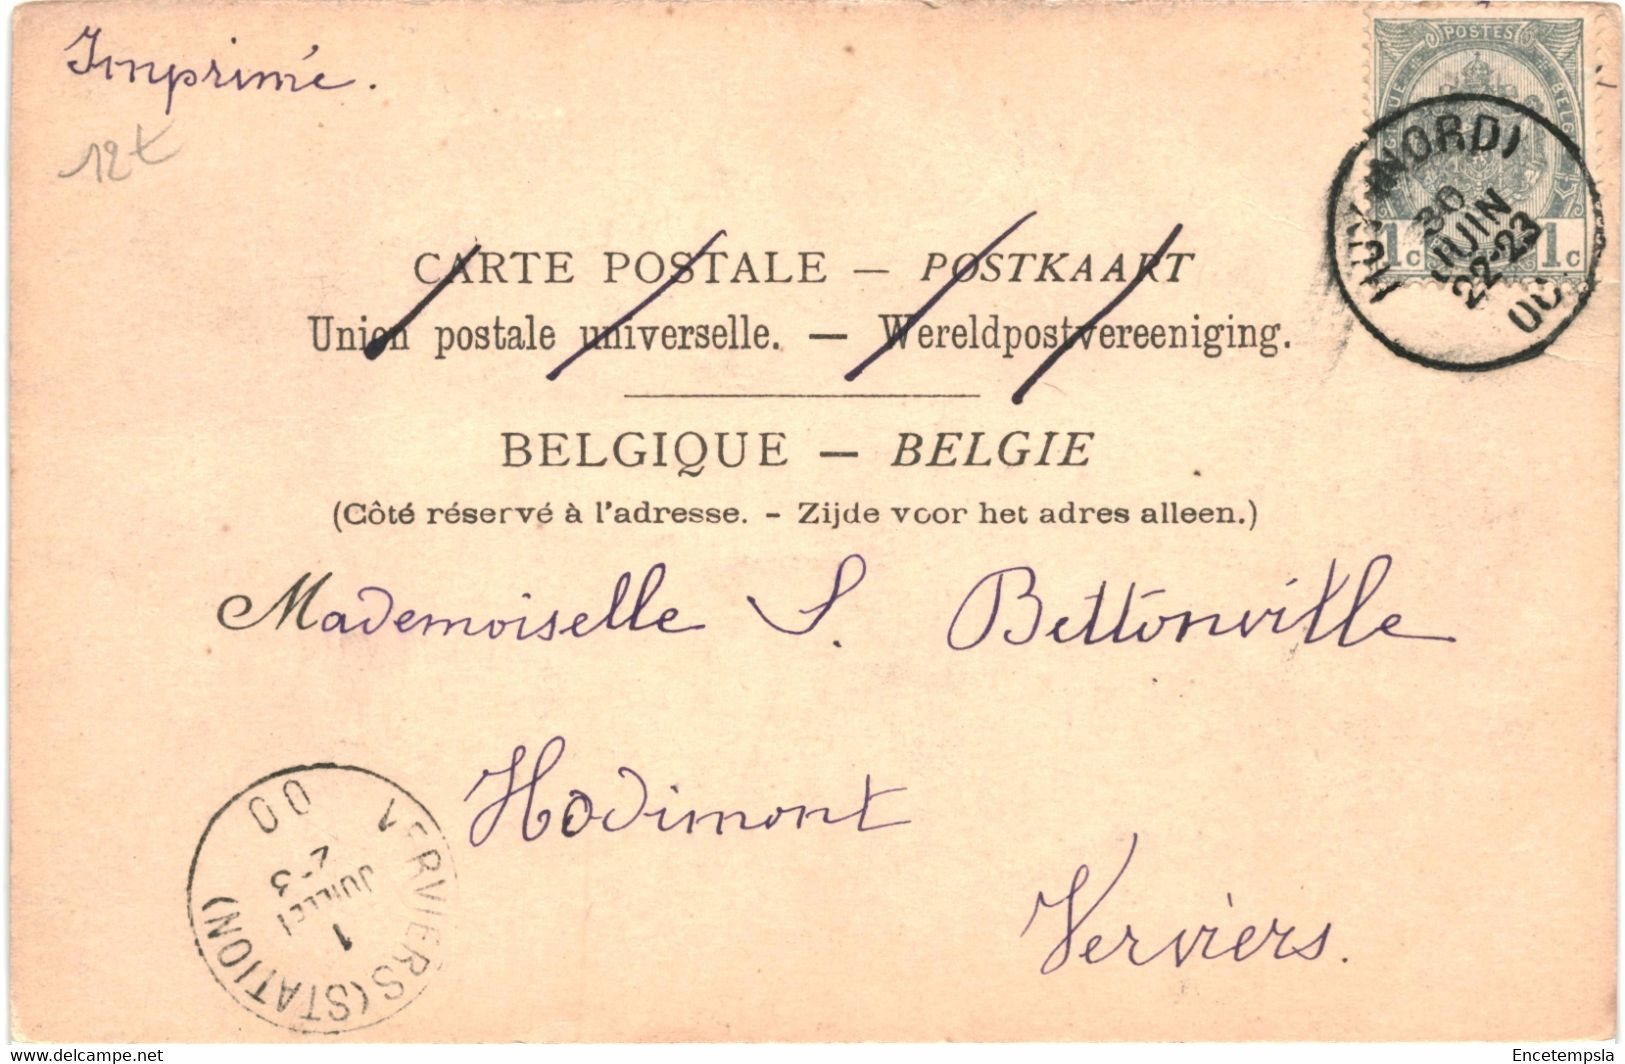 Imprimé.
12€
POSTES
BELG
1c 1c
HUY (NORD)
30
JUIN
22-23
00
CARTE POSTALE — POSTKAART
Union postale universelle. — Wereldpostvereeniging.
BELGIQUE — BELGIE
(Côté réservé à l'adresse. - Zijde voor het adres alleen.)
Mademoiselle S. Bettonville
Hodimont
Verviers.
VERVIERS (STATION)
1
JUILLET
2-3
00
https://www.delcampe.net
Encetempsla